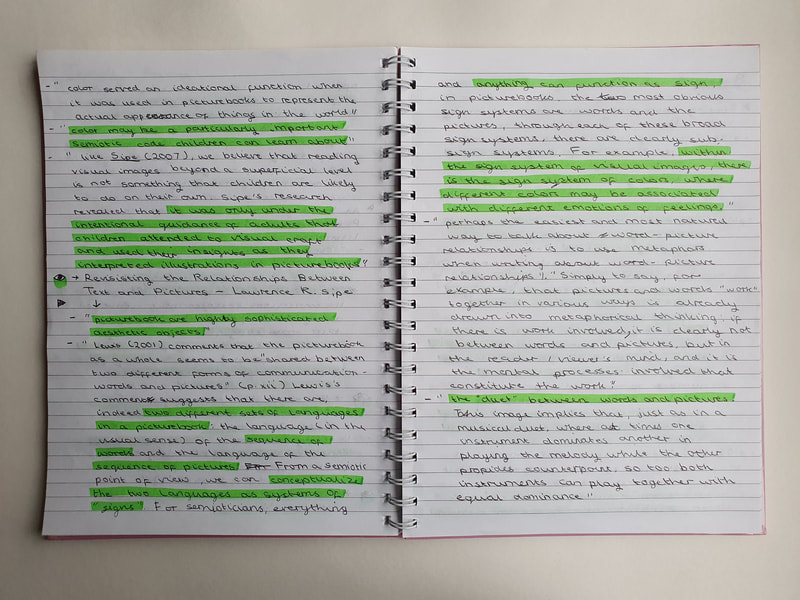 - " color served an ideational function when
it was used in picturebooks to represent the
actual appearance of things in the world"
- " color may be a particularly important
semiotic code children can learn about"
- " Like Sipe (2007), we believe that reading
visual images beyond a superficial level
is not something that children are likely
to do on their own. Sipe's research
revealed that it was only under the
intentional guidance of adults that
children attended to visual craft
and used their insights as they
interpreted illustrations in picturebooks"
→ Revisiting the Relationships Between
Text and Pictures - Lawrence R. Sipe
↓
- "picturebook are highly sophisticated
aesthetic objects"
- " Lewis (2001) comments that the picturebook
as a whole seems to be "shared between
two different forms of communication -
words and pictures" (p.xii) Lewis's
comment suggests that there are,
indeed two different sets of languages
in a picturebook: the language (in the
usual sense) of the sequence of
words and the language of the
sequence of pictures. From a semiotic
point of view, we can conceptualize
the two languages as systems of
"signs". For semioticians, everything
and anything can function as sign,
in picturebooks, the two most obvious
sign systems are words and the
pictures, through each of these broad
sign systems, there are clearly sub-
sign systems. For example, within
the sign system of visual images, there
is the sign system of colors, where
different colors may be associated
with different emotions of feelings."
- "perhaps the easiest and most natural
way to talk about word-picture
relationships is to use metaphors
when writing about word-picture
relationships". "Simply to say, for
example, that pictures and words "work"
together in various ways is already
drawn into metaphorical thinking; if
there is work involved, it is clearly not
between words and pictures, but in
the reader / viewer's mind, and it is
the mental processes involved that
constitute the work"
- " the "duet" between words and pictures.
This image implies that, just as in a
musical duet, where at times one
instrument dominates another in
playing the melody while the other
provides counterpoint, so too both
instruments can play together with
equal dominance"